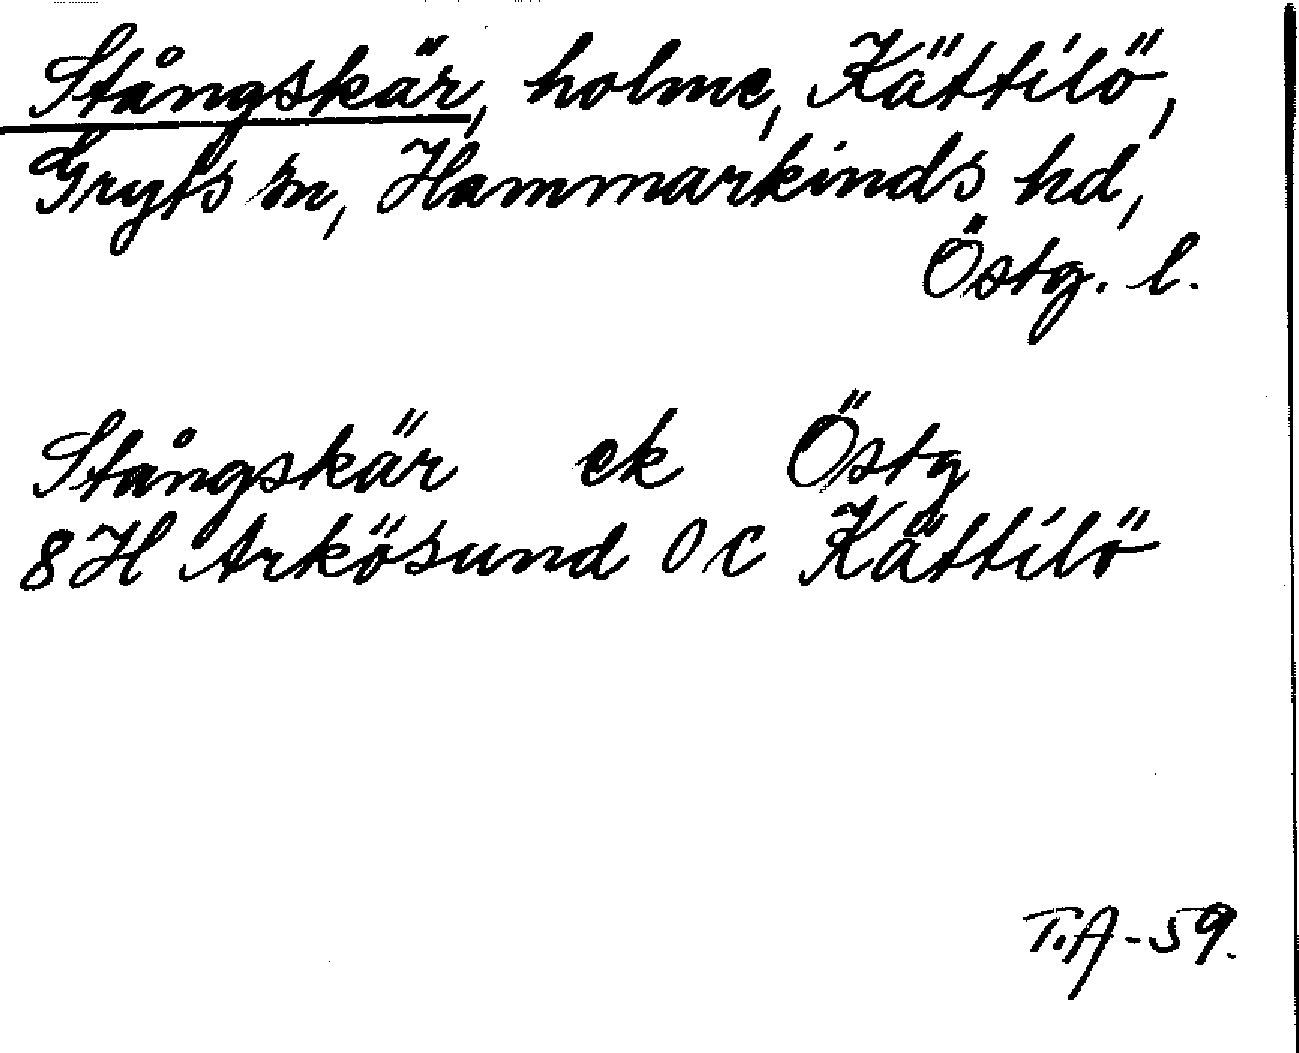 Stångskär, holme, Kättilö,
Gryts sn, Hammarkinds hd,
Östg. l.
Stångskär ek Östg
8H Arkösund 0 c Kättilö
T.A-59.